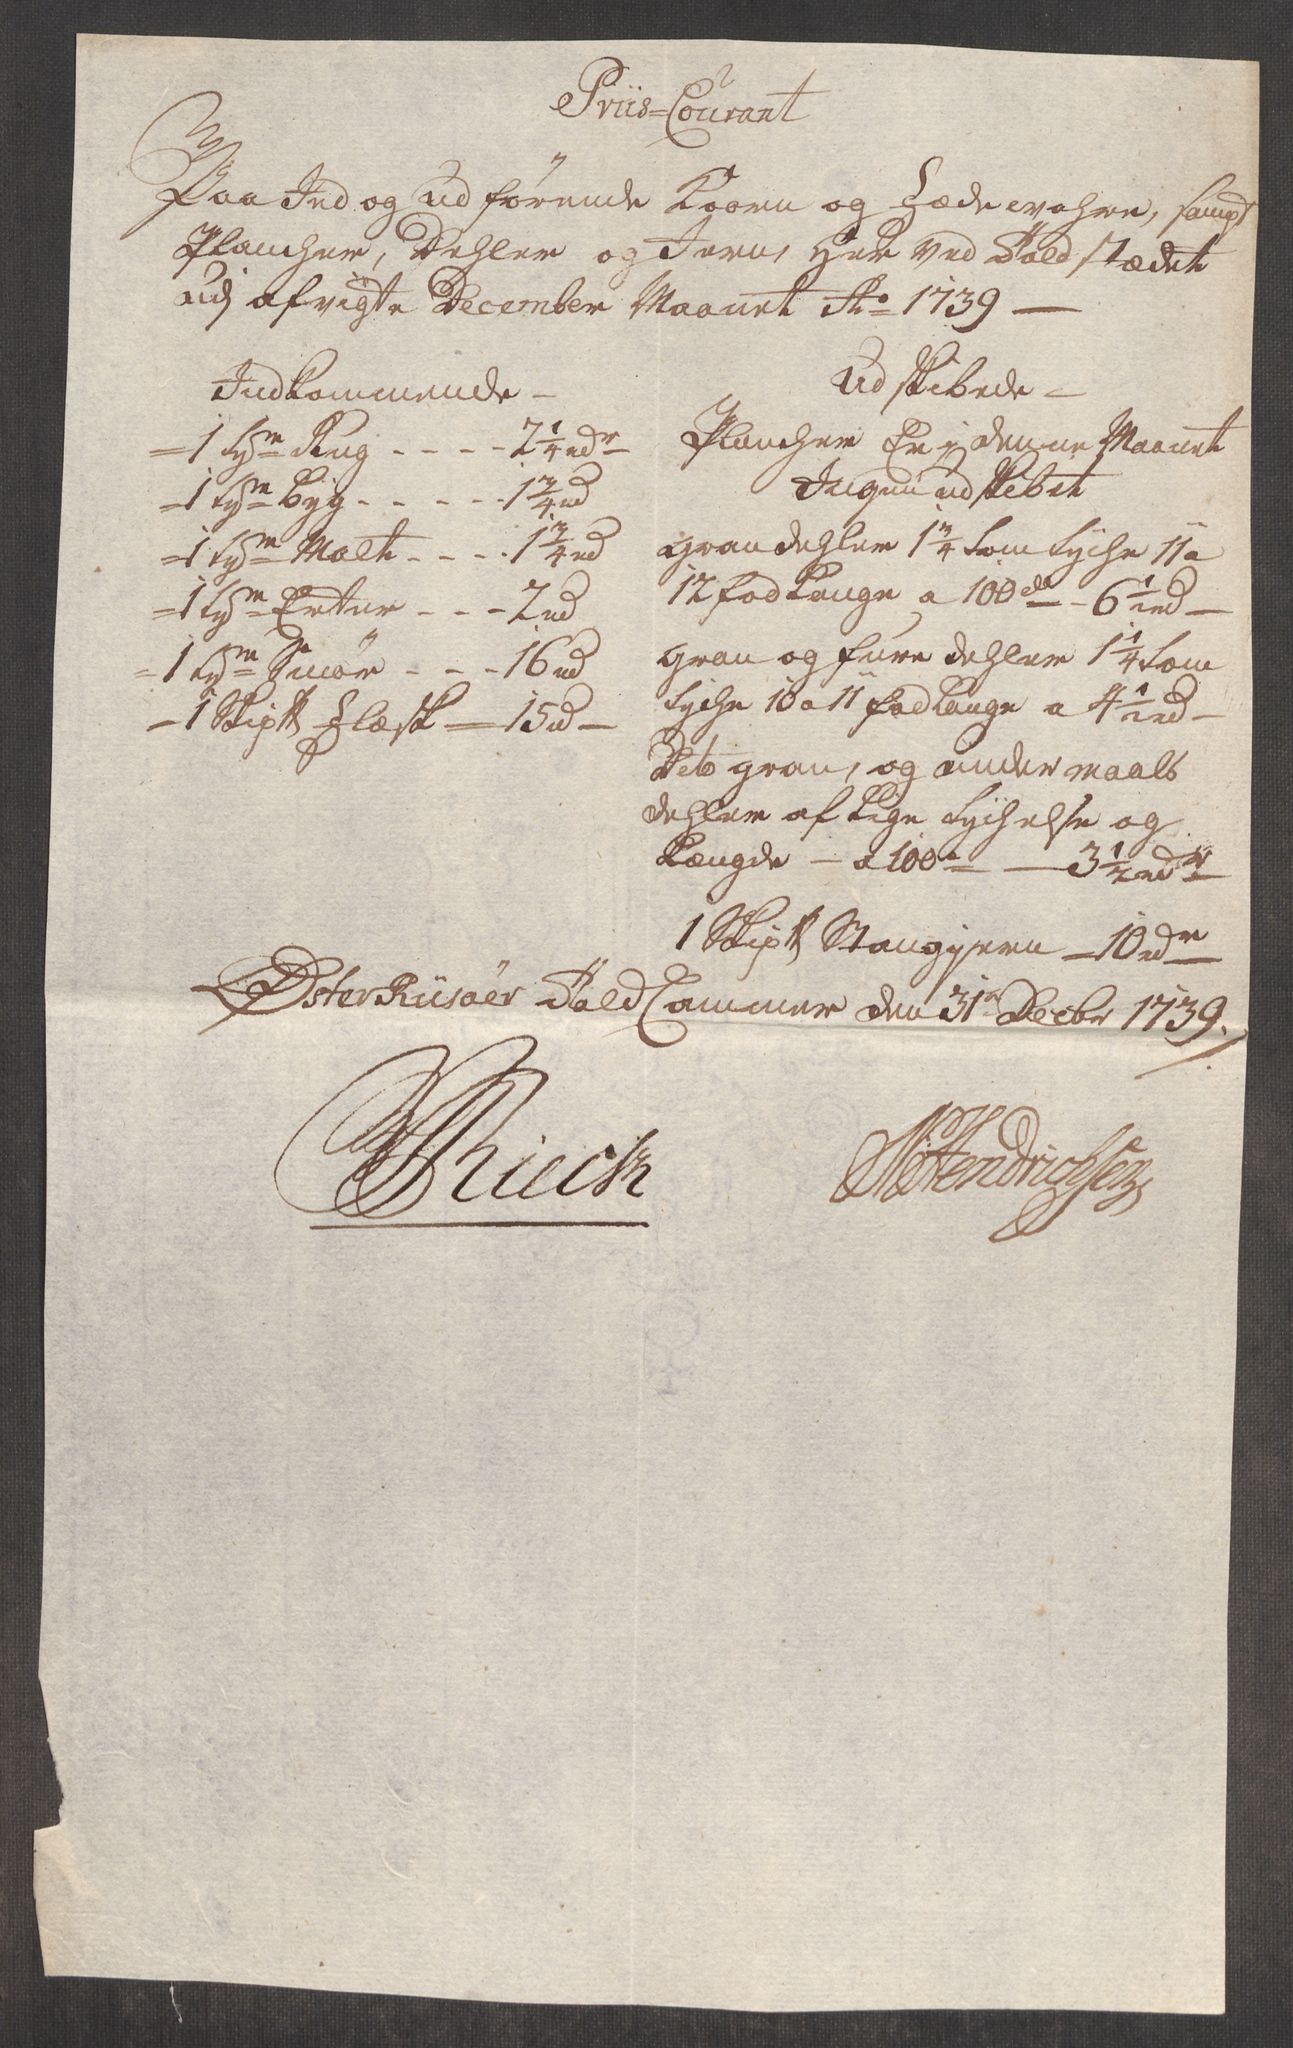 Priis=Courant
Paa Ind og udførende Koorn og Fædevahre, sampt
Plancher, Dehler og Jern, Her ved Told stædet
udj afvigte December Maanet Ao 1739 —
Indkommende —
=1 tyn Rug - - - - 2 1/4 rdr
=1 tyn byg - - - - - 1 3/4 rd
=1 tyn Malt - - - - 1 3/4 rd
=1 tyn Erter - - - 2 rd
=1 tyn Smør - - - 16 rd
—1 Skip℔ Flæsk = 15 rd —
Udskibede —
Plancher Er j denne Maanet
Ingen udskebet
gran dehler 1 3/4 tom tyche 11 a
12 fod lange a 100de - 6 1/2 rd —
gran og furre dehler 1 1/4 tom
tyche 10 a 11 fod lange a 4 1/2 rd —
Deto gran, og under maals
dehler af lige tychelse og
længde — a 100de — 3 1/2 rdr
1 Skip℔ Stangjern — 10 rdr
Øster Riisøer Told Cammer den 31te Decbr 1739.
Rieck
Hendrichsen